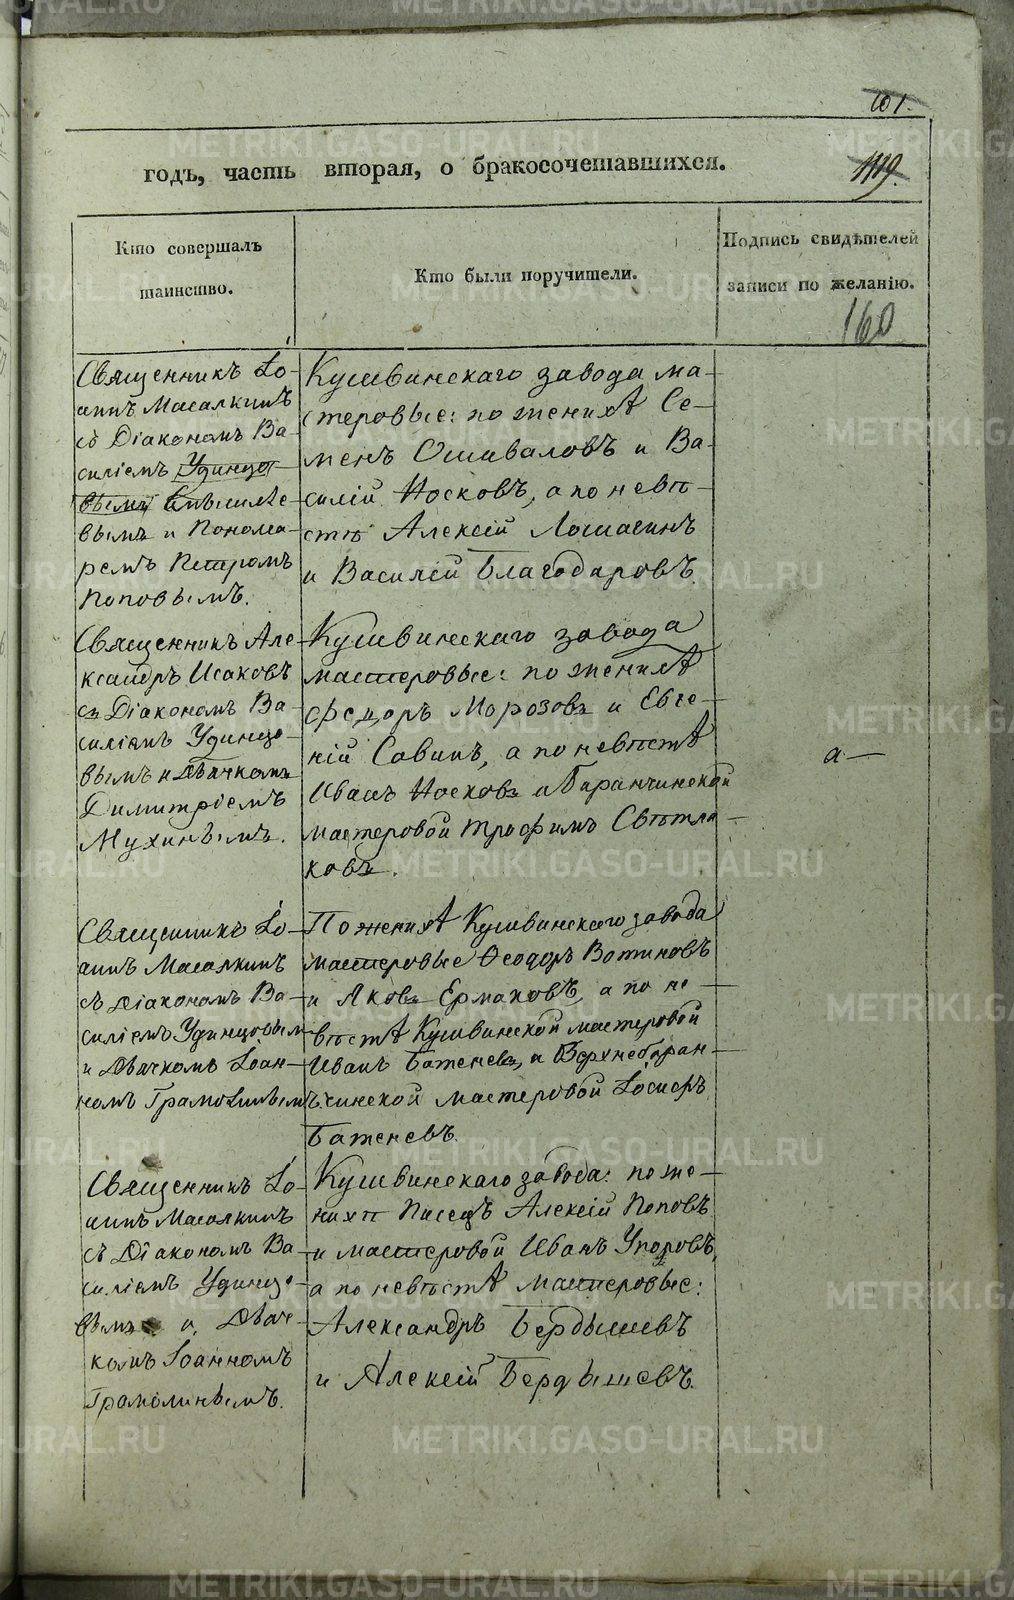 101.
годъ, часть вторая, о бракосочетавшихся.
1119.
Кто совершалъ
таинство.
Кто были поручители.
Подпись свидѣтелей
записи по желанію.
160
Священникъ Іо-
аннъ Масалкинъ
съ Діакономъ Ва-
силіемъ Удинцо-
вымъ
вымъ и Понома-
ремъ Петромъ
Поповымъ.
Кушвинскаго завода ма-
стеровые: по женихѣ Се-
менъ Ошиваловъ и Ва-
силій Носковъ, а по невѣ-
стѣ Алексій Лошагинъ
и Василій Благодаровъ.
Священникъ Але-
ксандръ Исаковъ
съ Діакономъ Ва-
силіемъ Удинцо-
вымъ и Дьячкомъ
Димитріемъ
Мухинымъ.
Кушвинскаго завода
мастеровые: по женихѣ
Федоръ Морозовъ и Евге-
ній Савинъ, а по невѣстѣ
Иванъ Носковъ и Баранчинской
мастеровой Трофимъ Свѣтла-
ковъ.
а—
Священникъ Іо-
аннъ Масалкинъ
съ Діакономъ Ва-
силіемъ Удинцовым
и Дьячкомъ Іоан-
номъ Грамолинымъ
По женихѣ Кушвинскаго завода
мастеровые Ѳеодоръ Вотиновъ
и Яковъ Ермаковъ, а по не-
вѣстѣ Кушвинской мастеровой
Иванъ Баженевъ, и Верхнебаран-
чинской мастеровой Іосифъ
Баженевъ.
Священникъ Іо-
аннъ Масалкинъ
съ Діакономъ Ва-
силіемъ Удинцо-
вымъ и Дьяч-
комъ Іоанномъ
Грамолинымъ.
Кушвинскаго завода: по же-
нихѣ Писецъ Алексій Поповъ
и мастеровой Иванъ Упоровъ,
а по невѣстѣ мастеровые:
Александръ Бердышевъ
и Алексій Бердышевъ.
METRIKI.GASO-URAL.RU